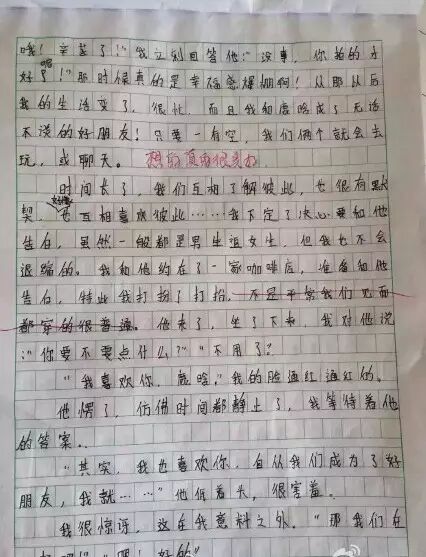 哦！辛苦了！"我立刻回答他："没事，你拍的才
好了！"那时候真的是幸福感爆棚啊！从那从后
喔
我的生活变了，很忙，而且我和鹿晗成了无话
不说的好朋友！只要一有空，我们俩个就会去
玩，或聊天。想的真的很美好
时间长了，我们互相了解彼此，也很有默
契，也互相喜欢彼此……我下定了决心要和他
好像
告白，虽然一般都是男生追女生，但我也不会
退缩的。我和他约在了一家咖啡店，准备和他
告白，特此我打扮了打扮，不是平常我们见面
都穿的很普通。他来了，坐了下来，我对他说
："你要不要点什么？""不用了？
"我喜欢你，鹿晗。"我的脸通红通红的。
他愣了，仿佛时间都静止了，我等待着他
的答案..
"其实，我也喜欢你，自从我们成为了好
朋友，我就……"他低着头，很害羞。
我很惊讶，这在我意料之外。"那我们在
好的"